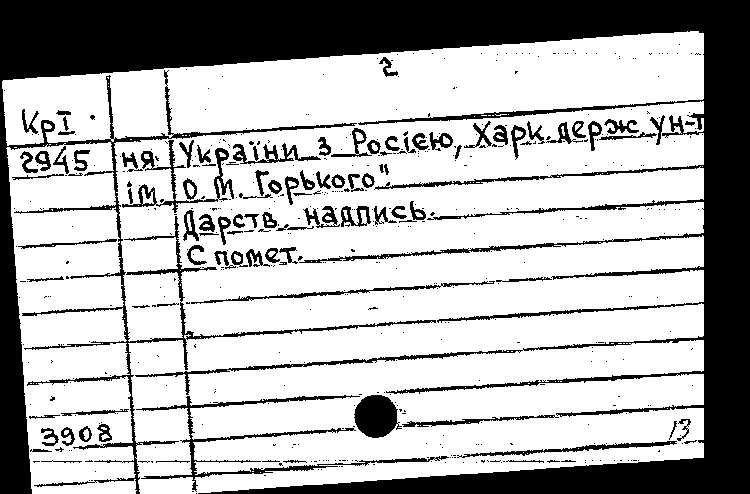 2
КрІ
2945 ня України з Росією, Харк. держ. ун-т
ім. О. М. Горького".
Дарств. надпись.
С помет.
3908
13